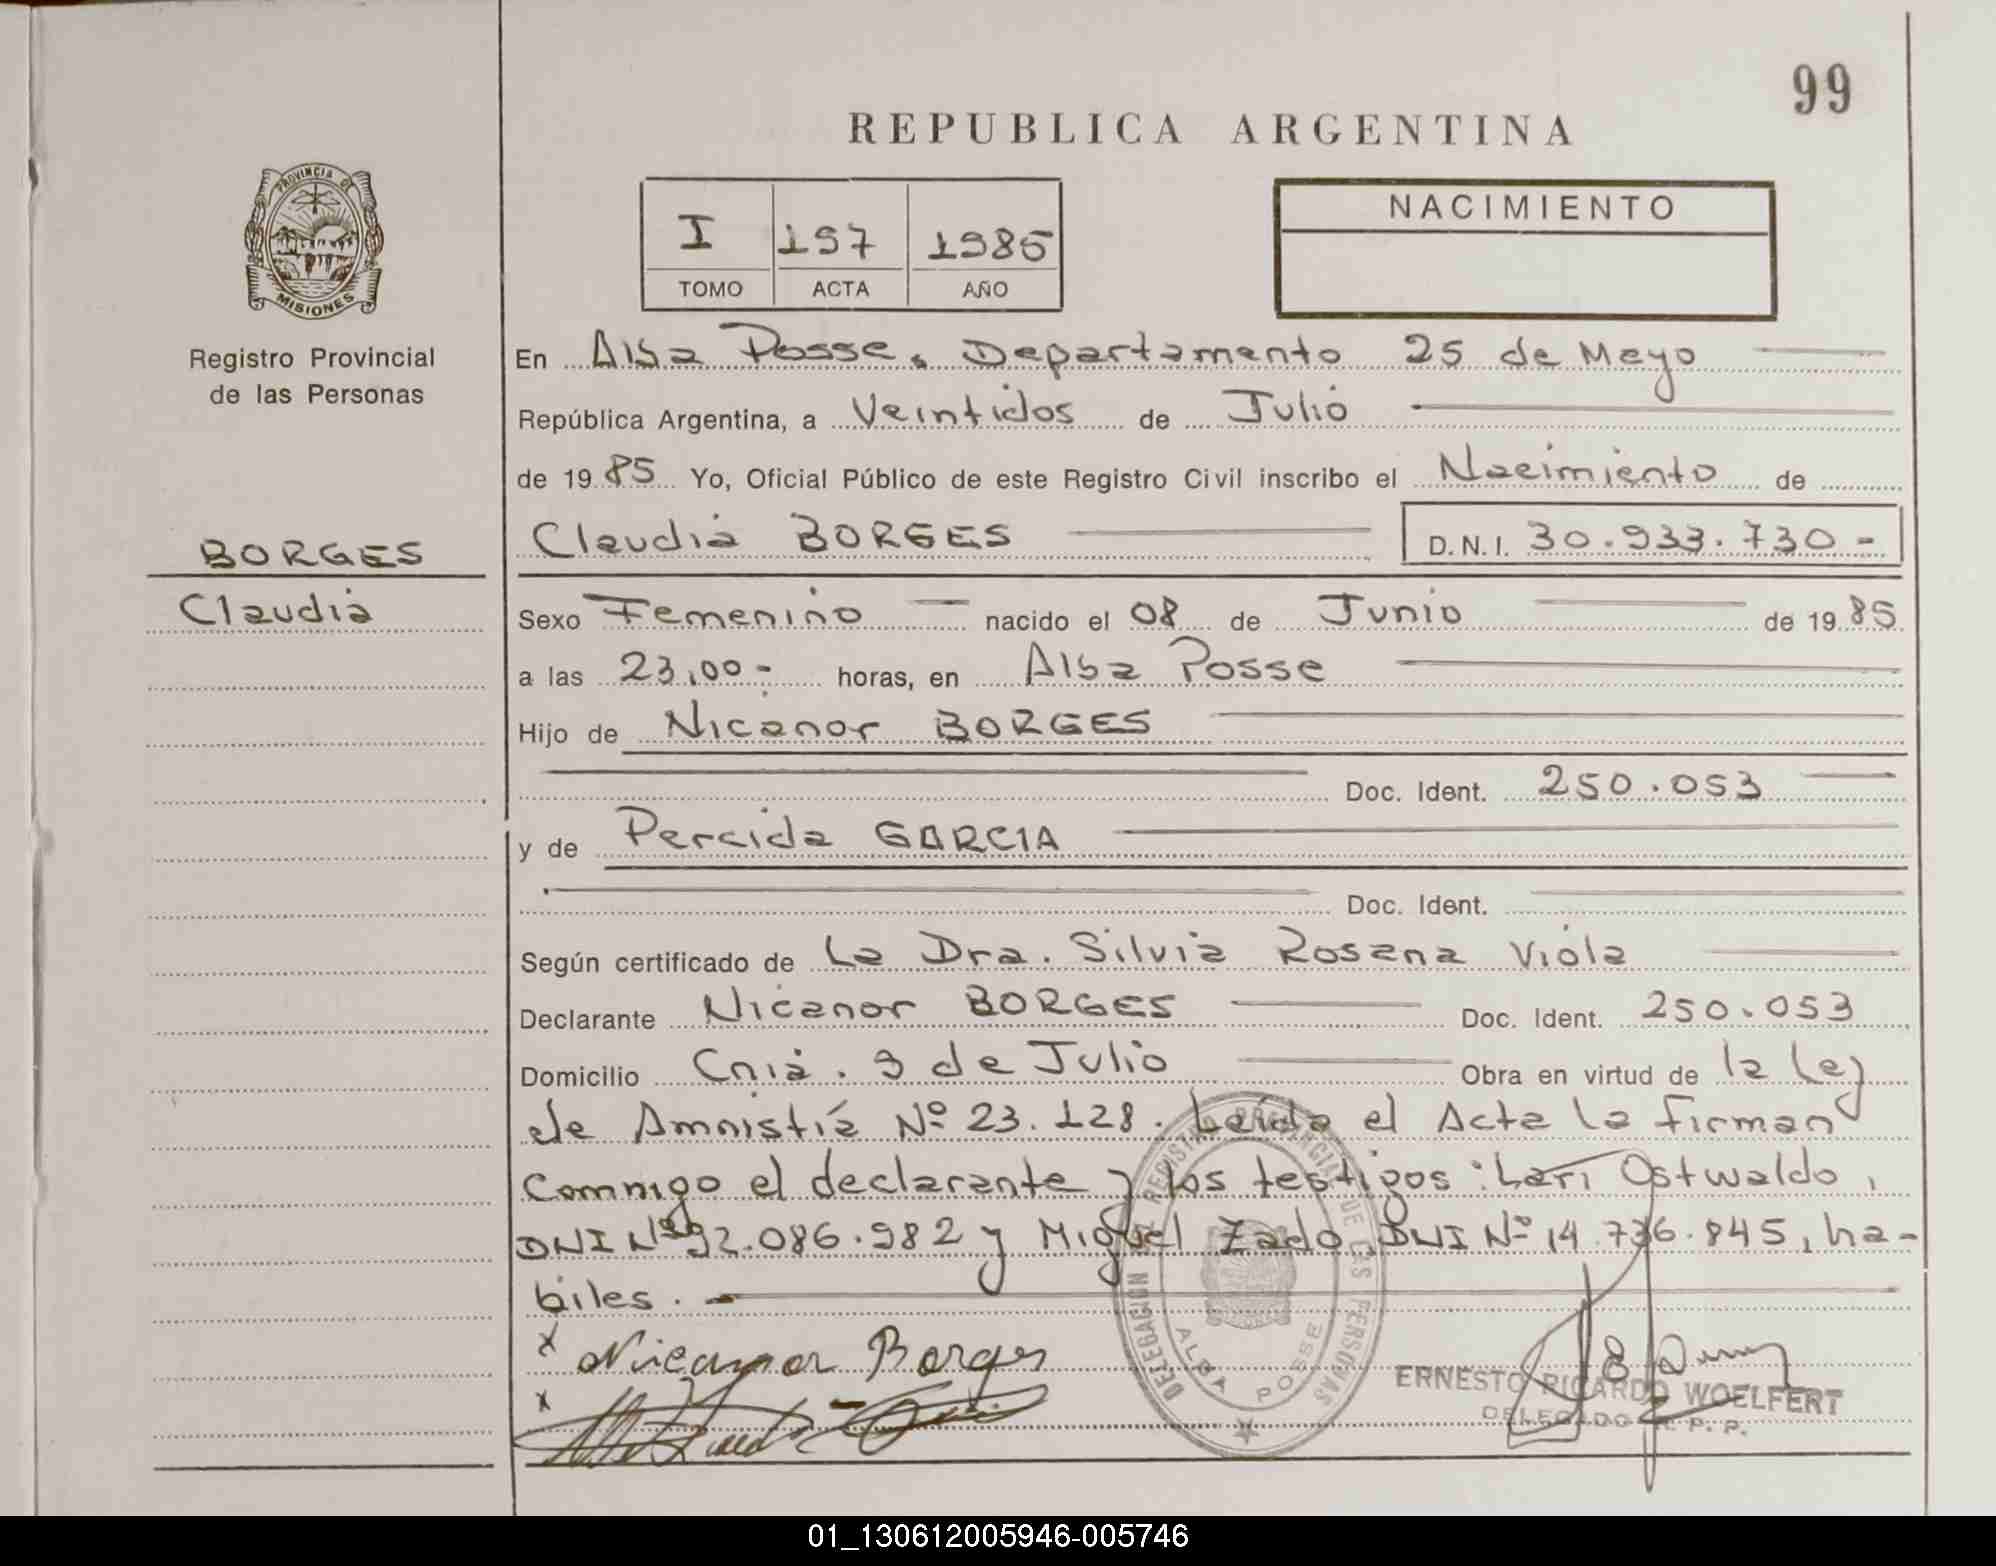 99
REPUBLICA ARGENTINA
PROVINCIA DE
MISIONES
Registro Provincial
de las Personas
I 197 1985
TOMO ACTA AÑO
NACIMIENTO
En Alba Posse, Departamento 25 de Mayo
República Argentina, a Veintidos de Julio
de 1985 Yo, Oficial Público de este Registro Civil inscribo el Nacimiento de
BORGES
Claudia
Claudia BORGES D.N.I. 30.933.730-
Sexo Femenino nacido el 08 de Junio de 1985
a las 23,00- horas, en Alba Posse
Hijo de Nicanor BORGES
Doc. Ident. 250.053
y de Percida GARCIA
Doc. Ident.
Según certificado de La Dra. Silvia Rosana Viola
Declarante Nicanor BORGES Doc. Ident. 250.053
Domicilio Cnia. 9 de Julio Obra en virtud de la Ley
de Amnistía Nº 23.128. Leída el Acta la firman
conmigo el declarante y los testigos: Lari Ostwaldo,
DNI Nº 92.086.982 y Miguel Zado, DNI Nº 14.736.845, ha-
biles.
x Nicanor Borges
x
DELEGACION REGISTRO PROVINCIAL DE LAS PERSONAS
ALBA POSSE
ERNESTO RICARDO WOELFERT
DELEGADO R. P. P.
01_130612005946-005746